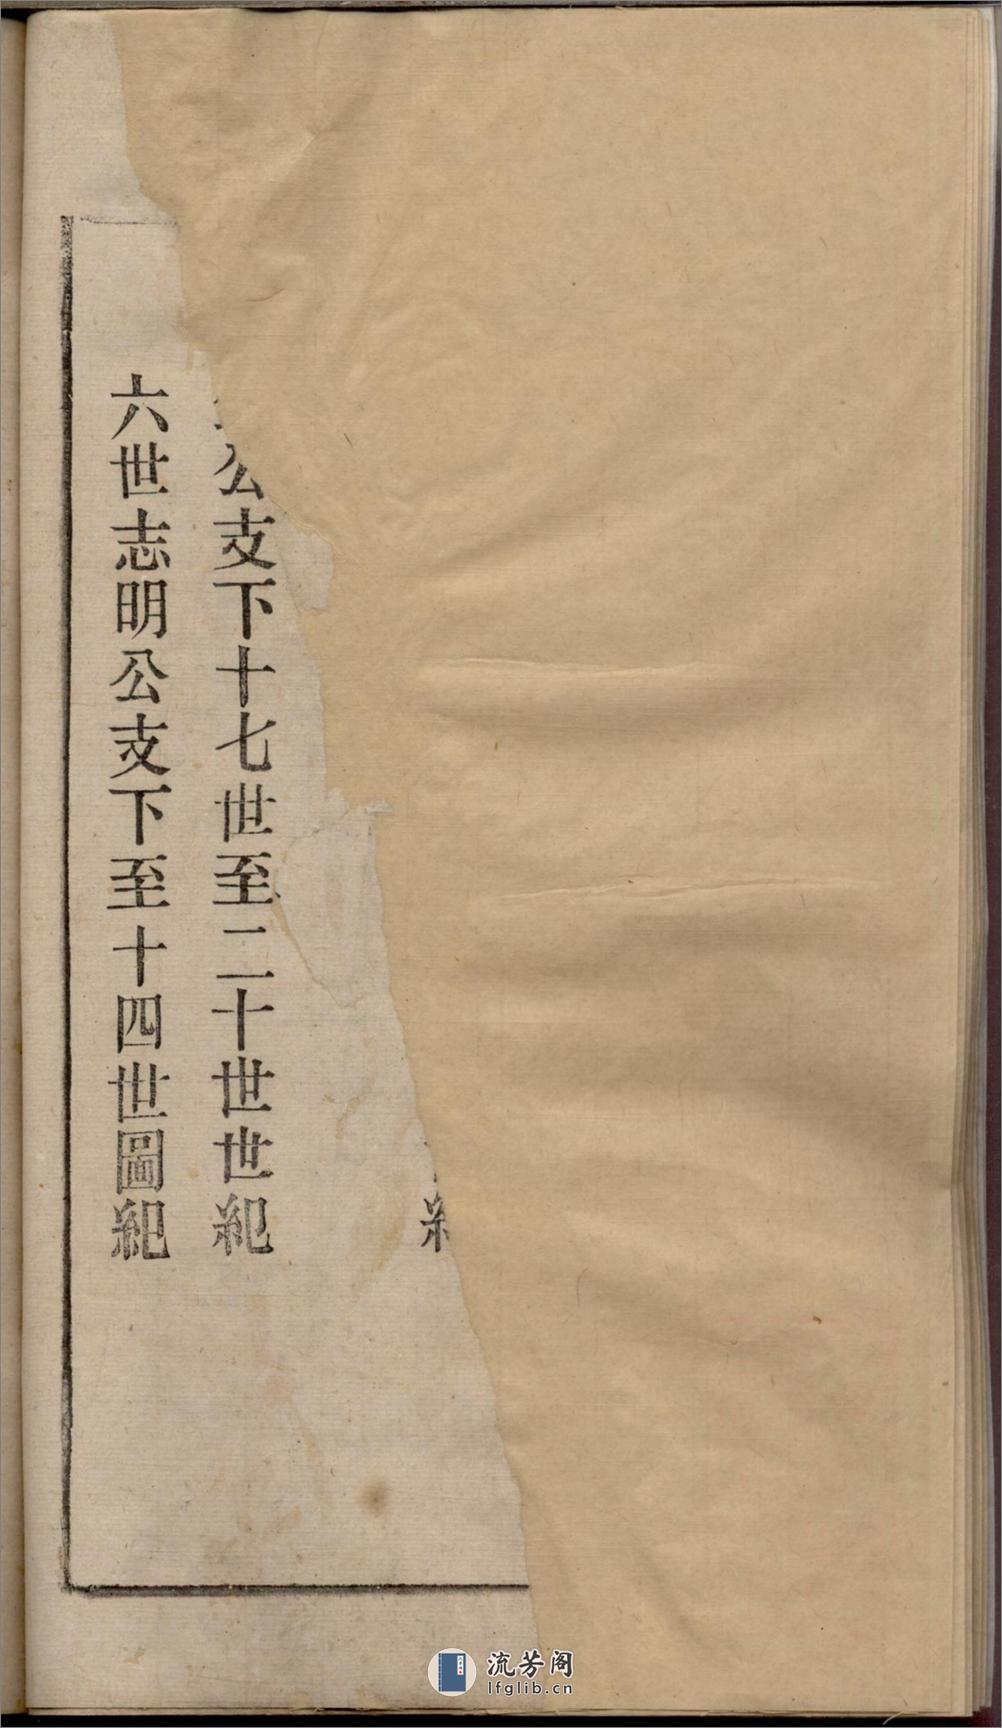 公支下十七世至二十世世紀
六世志明公支下至十四世圖紀
流芳阁
lfglib.cn